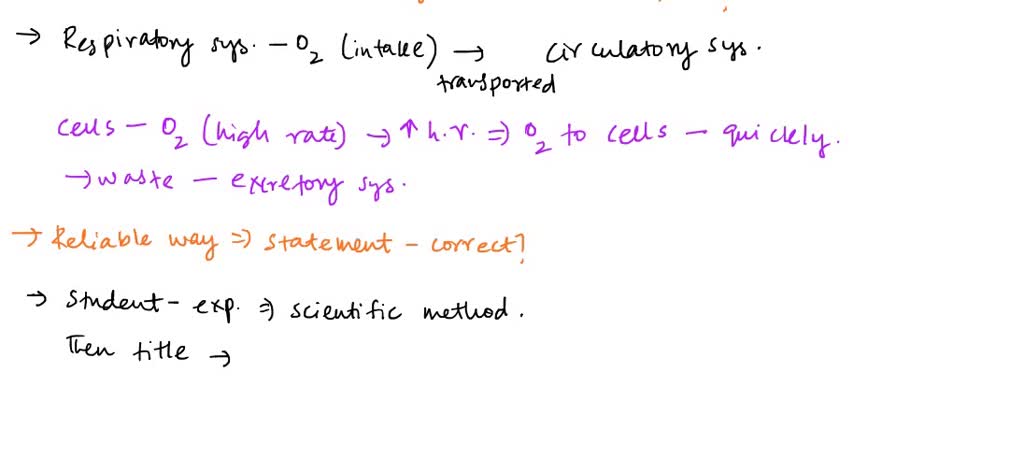 → Respiratory sys. – O₂ (intake) → circulatory sys.
transported
cells – O₂ (high rate) → ↑ h.r. ⇒ O₂ to cells – quickly.
→ waste – excretory sys.
→ Reliable way ⇒ statement – correct?
→ Student – exp. ⇒ scientific method.
Then title →